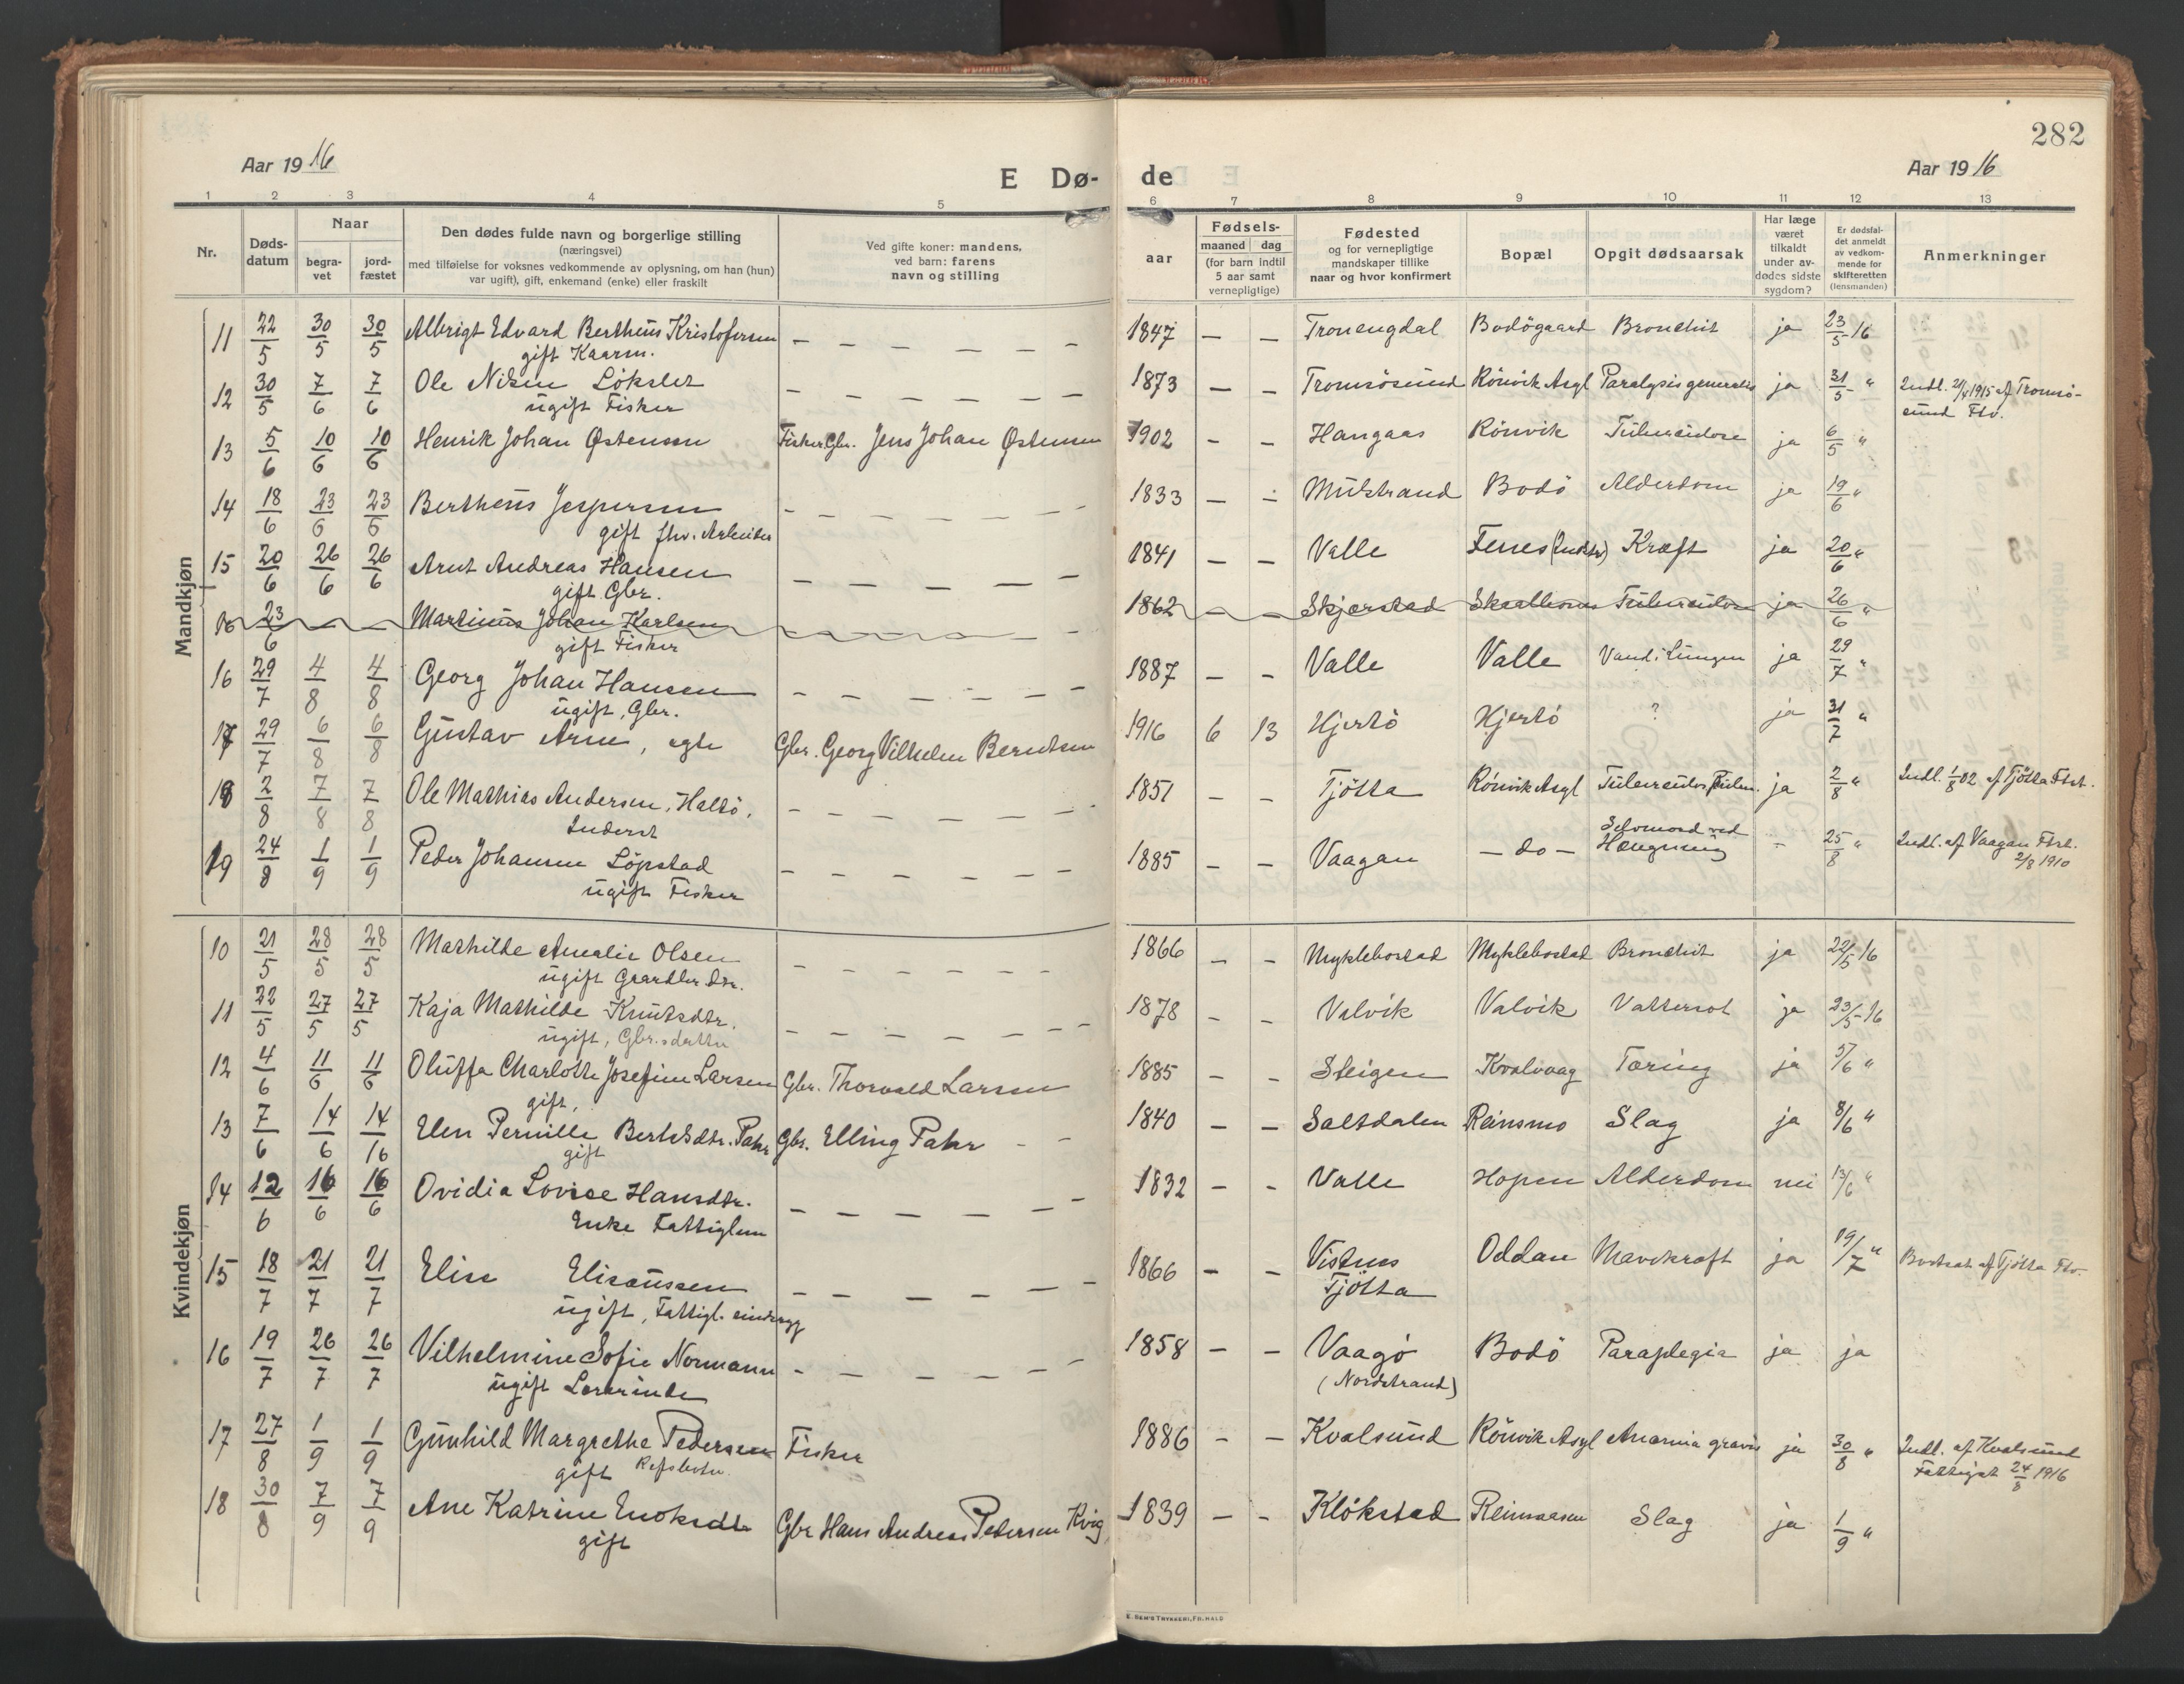 282
Aar 1916
E Dø-
de
Aar 1916
1 2 3 4 5 6 7 8 9 10 11 12 13
Nr.
Døds-
datum
Naar
begra-
vet
jord-
fæstet
Den dødes fulde navn og borgerlige stilling
(næringsvei)
med tilføielse for voksnes vedkommende av oplysning, om han (hun)
var ugift), gift, enkemand (enke) eller fraskilt
Ved gifte koner: mandens,
ved barn: farens
navn og stilling
Fødsels-
aar
maaned dag
(for barn indtil
5 aar samt
vernepligtige)
Fødested
og for vernepligtige
mandskaper tillike
naar og hvor konfirmert
Bopæl
Opgit dødsaarsak
Har læge
været
tilkaldt
under av-
dødes sidste
sygdom?
Er dødsfal-
det anmeldt
av vedkom-
mende for
skifteretten
(lensmanden)
Anmerkninger
Mandkjøn
11 22/5 30/5 30/5 Albrigt Edvard Bertheus Kristofersen — — — — — — 1847 — — Bodögaard Bronchit ja 23/5 16
gift Kaarm.
12 30/5 7/6 7/6 Ole Nilsen — — — — — — 1873 — — Tromsösund Rönvik Asyl Paralysis generalis ja 31/5 " Indl. 21/4 1915 af Tromsö-
ugift Fisker sund Ftv.
13 5/6 10/6 10/6 Henrik Johan Østensen Fisker Gbr. Jens Johan Østensen 1902 - - Hangaas Rönvik Tuberculose ja 6/5 "
14 18/6 23/6 23/6 Bertheus Jespersen - — — — — - - 1833 — - Mulstrand Bodö Alderdom ja 19/6 "
gift fhv. Arbeider
15 20/6 26/6 26/6 Arnt Andreas Hansen — — — — — 1841 — — Valle Fenes Kræft ja 20/6 "
gift Gbr.
16 23/6 — — Martinus Johan Karlsen 1862 — — Skjerstad Tuberculose ja 26/6 "
gift Fisker
16 29/7 4/8 4/8 Georg Johan Hansen — — — — — — 1887 — — Valle Valle Vand i Lungen ja 29/7 "
ugift, Gbr.
17 29/7 6/8 6/8 Gustav Arne, egte Gbr. Georg Vilhelm Berntsen 1916 6 13 Hjertö Hjertö ? ja 31/7 "
18 2/8 7/8 7/8 Ole Mathias Andersen, Haltö, — — — — — — 1851 — - Tjötta Rönvik Asyl ja 2/8 " Indl. 1/8 02 af Tjötta Ftst.
Inderst
19 24/8 1/9 1/9 Peder Johansen Löpstad — — — — — — 1885 — — Vaagan — do — Selvmord ved - 25/8 " Indl. af Vaagan Ftst.
ugift Fisker Hængning 2/8 1910
Kvindekjøn
10 21/5 28/5 28/5 Mathilde Amalie Olsen — — — — — — 1866 — — Myklebostad Myklebostad Bronchit ja 22/5 16
ugift Gaardbr. dtr.
11 22/5 27/5 27/5 Kaja Mathilde Knutsdtr. — — — — — — 1878 — — Valvik Valvik Vattersot ja 23/5 16
ugift, Gbr.s datter
12 4/6 11/6 11/6 Oluffa Charlotte Josefine Larsen Gbr. Thorvald Larsen 1885 - - Steigen Kvalvaag Tæring ja 5/6 "
gift,
13 7/6 14/6 14/16 Elen Pernille Bertelsdtr. Pahr Gbr. Elling Pahr - - 1840 — — Saltdalen Reinsmo Slag ja 8/6 "
gift
14 12/6 16/6 16/6 Ovidia Lovise Hansdtr. — — — — — — 1832 — - Valle Hopen Alderdom nei 13/6 "
Enke Fattiglem
15 18/7 21/7 21/7 Elise Elisæussen — — — — — — 1866 — — Vistnes Oddan Mavekræft ja 19/7 " Bortsat af Tjötta Ftv.
ugift, Fattigl. Tjötta
16 19/7 26/7 26/7 Vilhelmine Sofie Normann — — — — — — 1858 — — Vaagö Bodö Paraplegia ja ja
ugift Lærerinde (Nordstrand)
17 27/8 1/9 1/9 Gunhild Margrethe Pedersen Fisker 1886 - — Kvalsund Rönvik Asyl Anæmia gravis ja 30/8 " Indl. af Kvalsund
gift Refsbotn. Fattigst 24/8 1916
18 30/8 7/9 7/9 Ane Katrine Enoksdtr Gbr Hans Andreas Petersen Kvig 1839 — - Klökstad Slag ja 1/9 "
gift
E. SEM'S TRYKKERI, FR.HALD